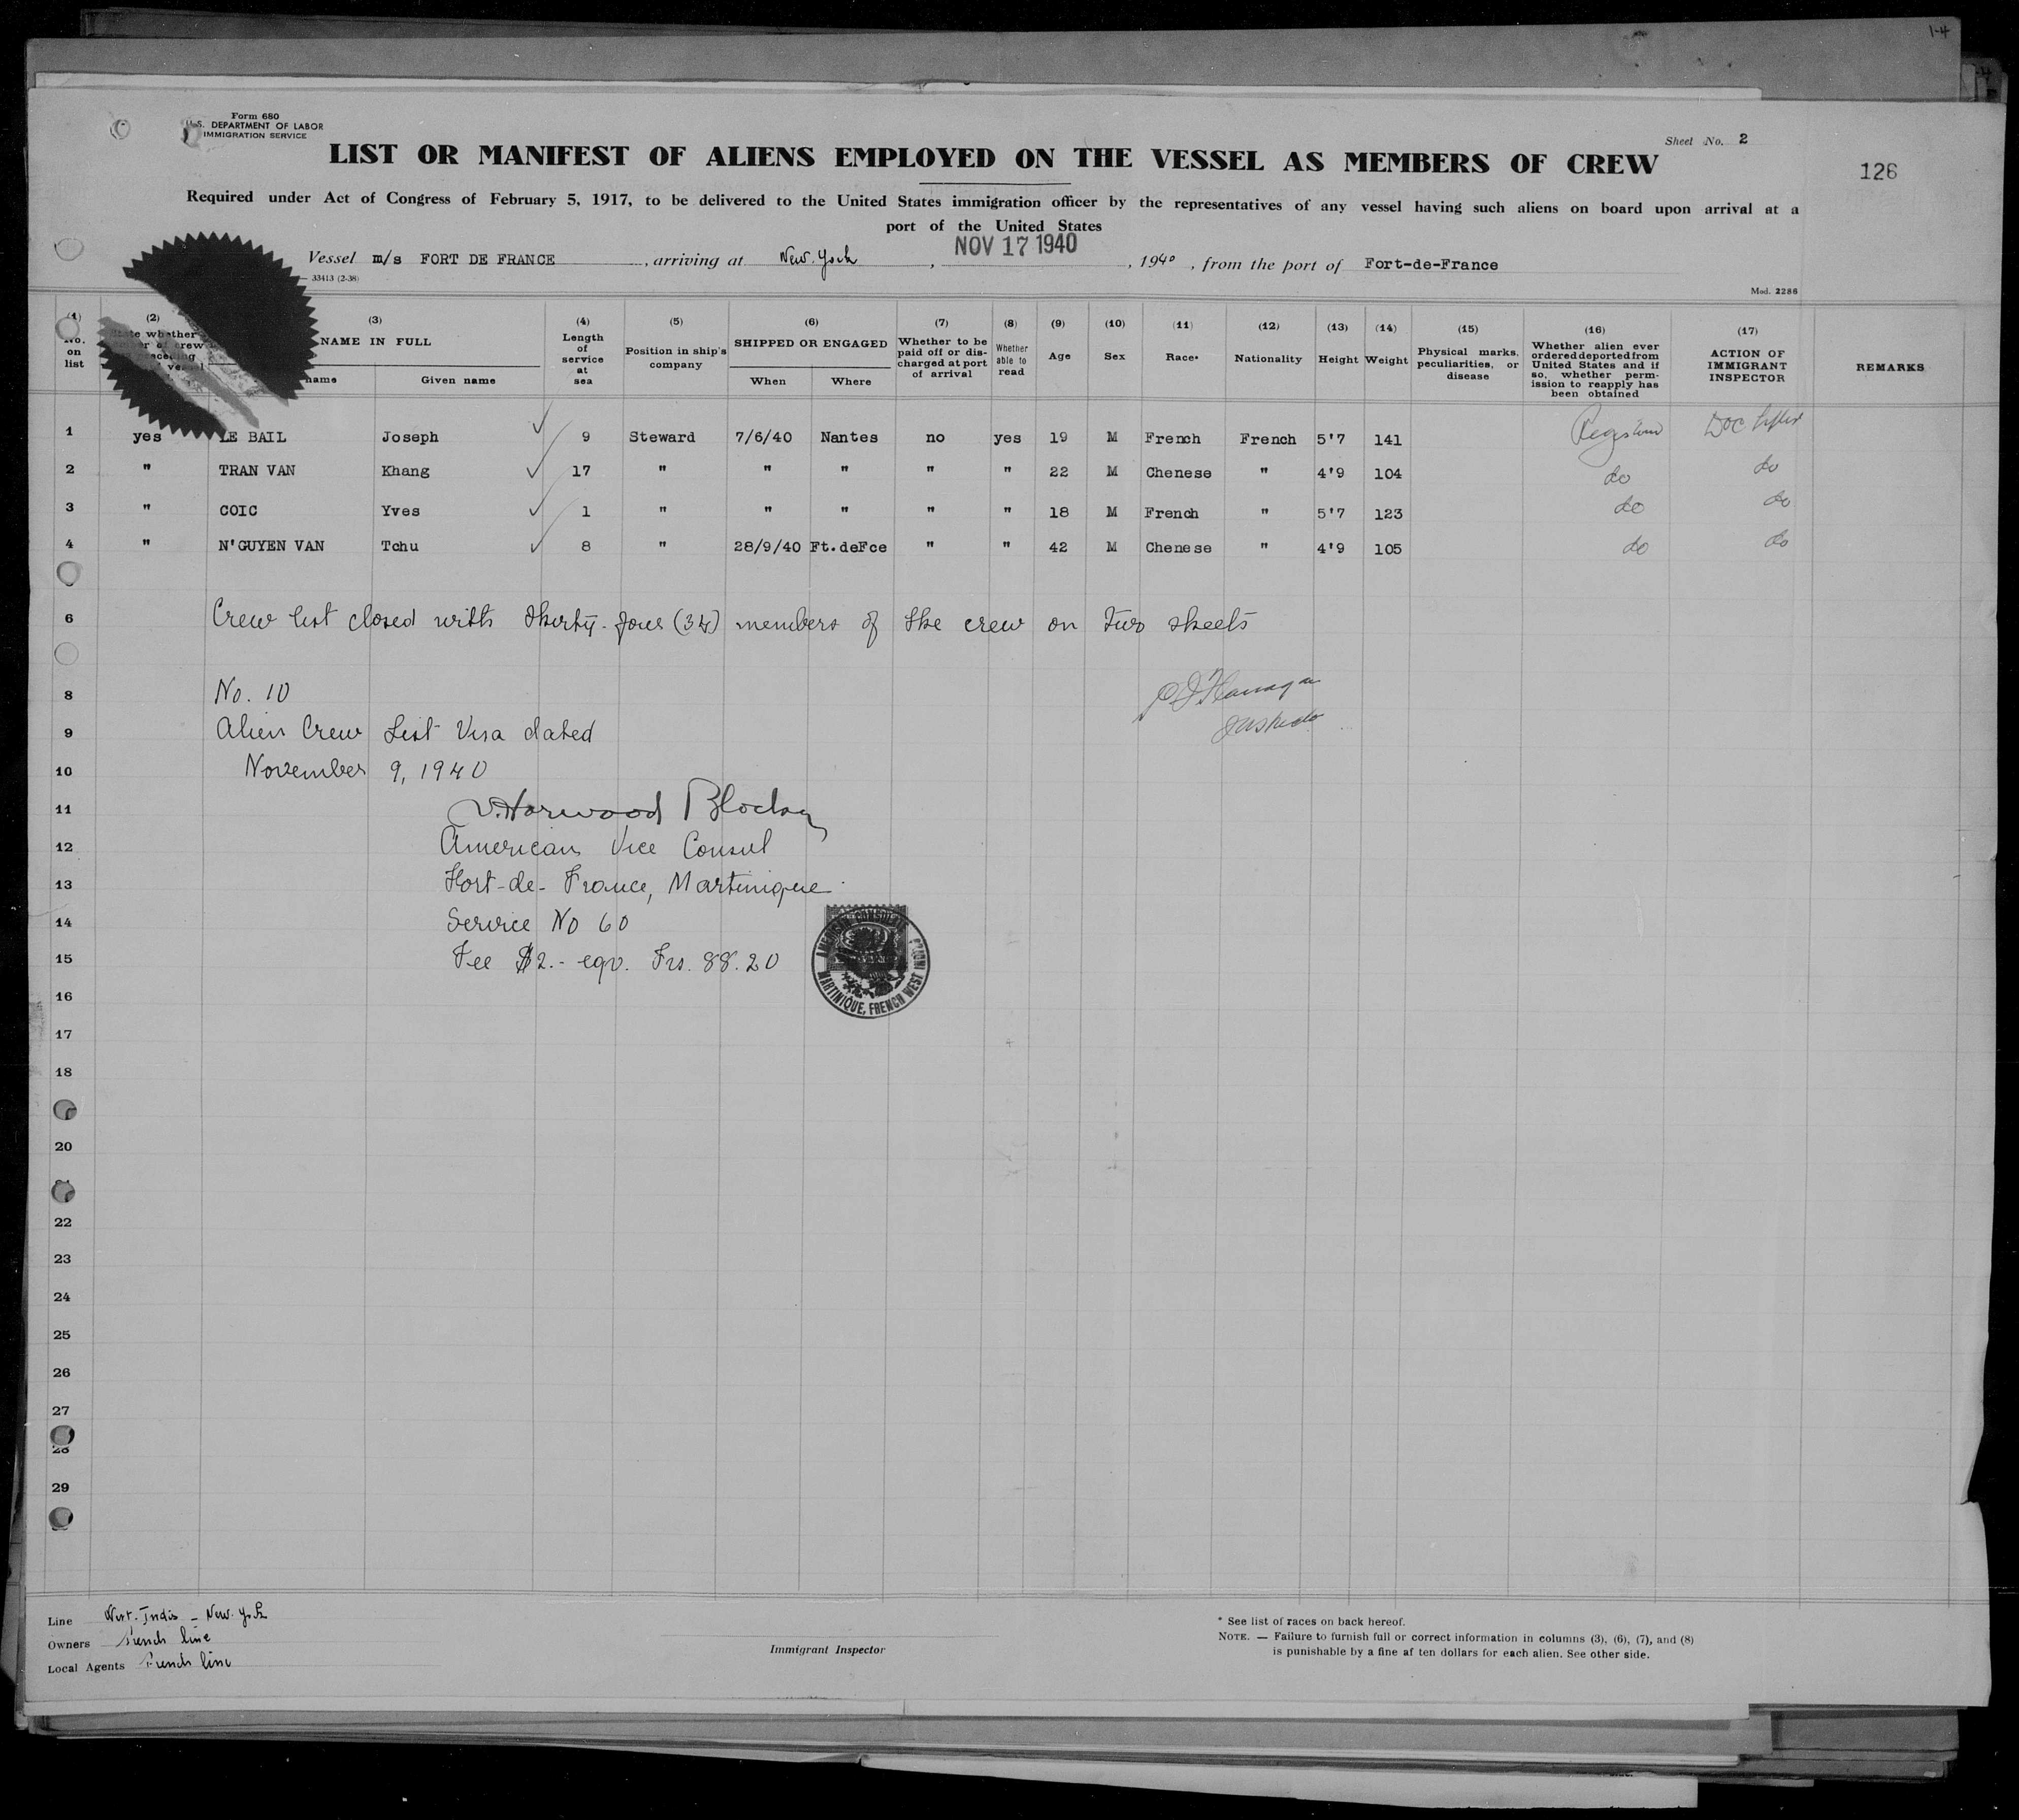 1-4
Form 680
U.S. DEPARTMENT OF LABOR
IMMIGRATION SERVICE
Sheet No. 2
LIST OR MANIFEST OF ALIENS EMPLOYED ON THE VESSEL AS MEMBERS OF CREW
126
Required under Act of Congress of February 5, 1917, to be delivered to the United States immigration officer by the representatives of any vessel having such aliens on board upon arrival at a
port of the United States
Vessel m/s FORT DE FRANCE, arriving at New-York, NOV 17 1940, 1940, from the port of Fort-de-France
33413 (2-38)
Mod. 2286
(1) (2) (3) (4) (5) (6) (7) (8) (9) (10) (11) (12) (13) (14) (15) (16) (17)
No. on list
NAME IN FULL
Given name
Length of service at sea
Position in ship's company
SHIPPED OR ENGAGED
When Where
Whether to be paid off or discharged at port of arrival
Whether able to read
Age
Sex
Race*
Nationality
Height
Weight
Physical marks, peculiarities, or disease
Whether alien ever ordered deported from United States and if so, whether permission to reapply has been obtained
ACTION OF IMMIGRANT INSPECTOR
REMARKS
1 yes LE BAIL Joseph 9 Steward 7/6/40 Nantes no yes 19 M French French 5'7 141
2 " TRAN VAN Khang 17 " " " " " 22 M Chenese " 4'9 104 do do
3 " COIC Yves 1 " " " " " 18 M French " 5'7 123 do do
4 " N'GUYEN VAN Tchu 8 " 28/9/40 Ft.deFce " " 42 M Chenese " 4'9 105 do do
6 Crew list closed with thirty-four (34) members of the crew on two sheets
8 No. 10
9 Alien Crew List Visa dated
10 November 9, 1940
11 V. Harwood Blocker
12 American Vice Consul
13 Fort-de-France, Martinique.
14 Service No 60
15 Fee $2.- eqv. Frs. 88.20
AMERICAN CONSULATE MARTINIQUE, FRENCH WEST INDIES
16
17
18
20
22
23
24
25
26
27
28
29
Line West-Indis - New-York
Owners French line
Local Agents French line
Immigrant Inspector
* See list of races on back hereof.
NOTE. — Failure to furnish full or correct information in columns (3), (6), (7), and (8)
is punishable by a fine af ten dollars for each alien. See other side.